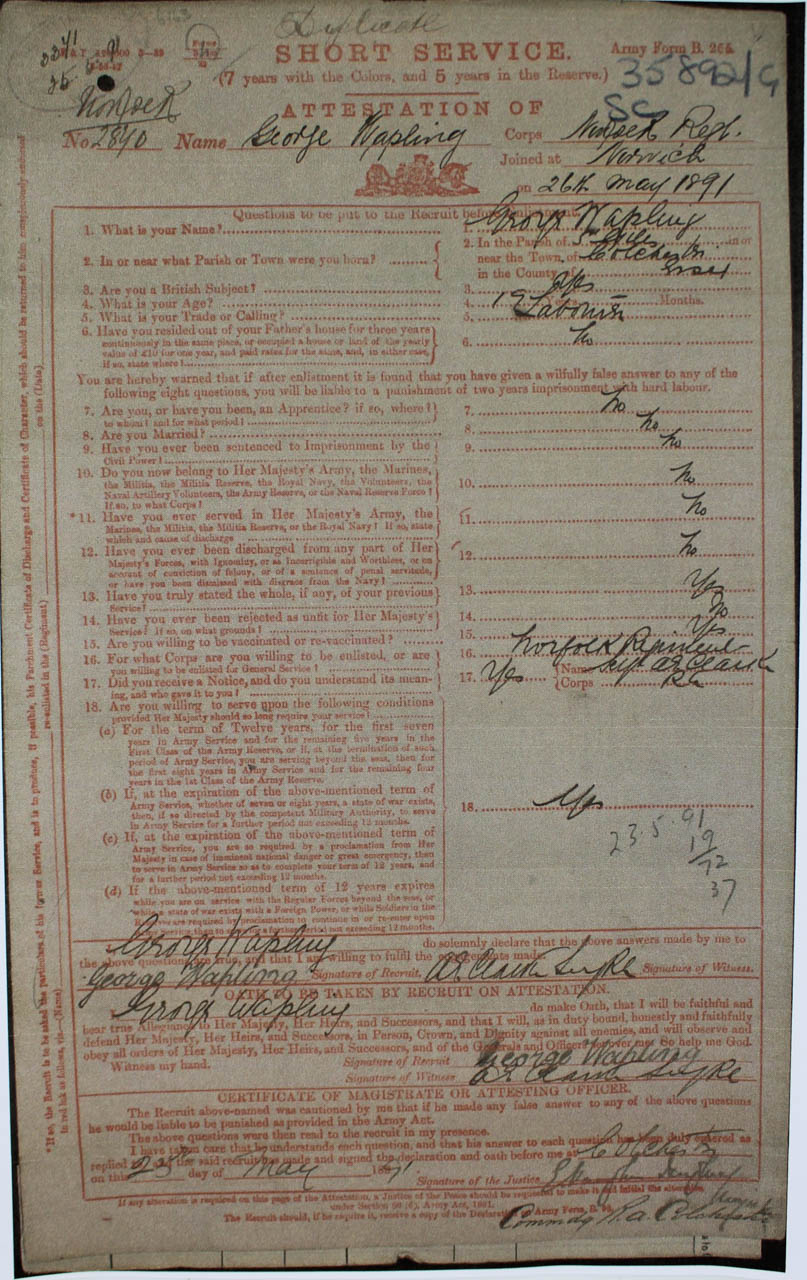 Duplicate
SHORT SERVICE.
Army Form B. 265.
(7 years with the Colors, and 5 years in the Reserve.)
35892/G
Norfolk
SC
ATTESTATION OF
No. 2840 Name George Wapling Corps Norfolk Regt.
Joined at Norwich
on 26th May 1891
Questions to be put to the Recruit before enlistment.
1. What is your Name? 1. George Wapling
2. In or near what Parish or Town were you born? 2. In the Parish of St Giles in or
near the Town of Colchester
in the County of Essex
3. Are you a British Subject? 3. Yes
4. What is your Age? 4. 19 Years Months.
5. What is your Trade or Calling? 5. Labourer
6. Have you resided out of your Father's house for three years
continuously in the same place, or occupied a house or land of the yearly
value of £10 for one year, and paid rates for the same, and, in either case,
if so, state where? 6. No
You are hereby warned that if after enlistment it is found that you have given a wilfully false answer to any of the
following eight questions, you will be liable to a punishment of two years imprisonment with hard labour.
7. Are you, or have you been, an Apprentice? if so, where?
to whom? and for what period? 7. No
8. Are you Married? 8. No
9. Have you ever been sentenced to Imprisonment by the
Civil Power? 9. No
10. Do you now belong to Her Majesty's Army, the Marines,
the Militia, the Militia Reserve, the Royal Navy, the Volunteers, the
Naval Artillery Volunteers, the Army Reserve, or the Naval Reserve Force?
If so, to what Corps? 10. No
*11. Have you ever served in Her Majesty's Army, the
Marines, the Militia, the Militia Reserve, or the Royal Navy? If so, state
which and cause of discharge 11. No
12. Have you ever been discharged from any part of Her
Majesty's Forces, with Ignominy, or as Incorrigible and Worthless, or on
account of conviction of felony, or of a sentence of penal servitude,
or have you been dismissed with disgrace from the Navy? 12. No
13. Have you truly stated the whole, if any, of your previous
Service? 13. Yes
14. Have you ever been rejected as unfit for Her Majesty's
Service? If so, on what grounds? 14. No
15. Are you willing to be vaccinated or re-vaccinated? 15. Yes
16. For what Corps are you willing to be enlisted, or are
you willing to be enlisted for General Service? 16. Norfolk Regiment
17. Did you receive a Notice, and do you understand its mean-
ing, and who gave it to you? 17. Yes Name Clark
Corps
18. Are you willing to serve upon the following conditions
provided Her Majesty should so long require your service?
(a) For the term of Twelve years, for the first seven
years in Army Service and for the remaining five years in the
First Class of the Army Reserve, or if, at the termination of such
period of Army Service, you are serving beyond the seas, then for
the first eight years in Army Service and for the remaining four
years in the 1st Class of the Army Reserve.
(b) If, at the expiration of the above-mentioned term of
Army Service, whether of seven or eight years, a state of war exists,
then, if so directed by the competent Military Authority, to serve
in Army Service for a further period not exceeding 12 months.
18. Yes
(c) If, at the expiration of the above-mentioned term of
Army Service, you are so required by a proclamation from Her
Majesty in case of imminent national danger or great emergency, then
to serve in Army Service so as to complete your term of 12 years, and
for a further period not exceeding 12 months.
23.5.91
19
72
37
(d) If the above-mentioned term of 12 years expires
while you are on service with the Regular Forces beyond the seas, or
while a state of war exists with a Foreign Power, or while Soldiers in the
Reserve are required by proclamation to continue in or re-enter upon
Army Service, then to serve for a further period not exceeding 12 months.
I George Wapling do solemnly declare that the above answers made by me to
the above questions are true, and that I am willing to fulfil the engagements made.
George Wapling Signature of Recruit. Signature of Witness.
OATH TO BE TAKEN BY RECRUIT ON ATTESTATION.
I George Wapling do make Oath, that I will be faithful and
bear true Allegiance to Her Majesty, Her Heirs, and Successors, and that I will, as in duty bound, honestly and faithfully
defend Her Majesty, Her Heirs, and Successors, in Person, Crown, and Dignity against all enemies, and will observe and
obey all orders of Her Majesty, Her Heirs, and Successors, and of the Generals and Officers set over me. So help me God.
Witness my hand. Signature of Recruit George Wapling
Signature of Witness
CERTIFICATE OF MAGISTRATE OR ATTESTING OFFICER.
The Recruit above-named was cautioned by me that if he made any false answer to any of the above questions
he would be liable to be punished as provided in the Army Act.
The above questions were then read to the recruit in my presence.
I have taken care that he understands each question, and that his answer to each question has been duly entered as
replied to, and the said recruit has made and signed the declaration and oath before me at Colchester
on this 23rd day of May 1891
Signature of the Justice
If any alteration is required on this page of the Attestation, a Justice of the Peace should be requested to make it and initial the alteration
under Section 80 (6), Army Act, 1881.
The Recruit should, if he require it, receive a copy of the Declaration on Army Form, B.
Commdg R.A. Colchester